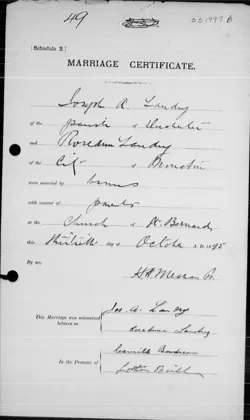 49
001997 B
[Schedule B.]
MARRIAGE CERTIFICATE.
Joseph A. Landry
of the parish of
Rosedem Landry
of the City of Moncton
were married by banns
with consent of parties
at the Church of St. Bernard
this thirtieth day of October A. D. 1895
H. A. Meahan Pr.
This Marriage was solemnized between us
Jos. A. Landry
Landry
In the Presence of